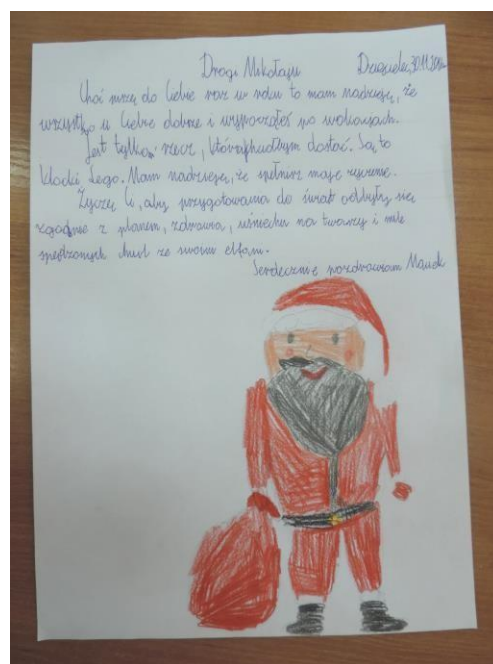 Drogi Mikołaju
Choć piszę do Ciebie raz w roku to mam nadzieję, że
wszystko u Ciebie dobrze i wypocząłeś po wakacjach.
Jest tylko rzecz, którą chciałbym dostać. Są to
klocki Lego. Mam nadzieję, że spełnisz moje życzenie.
Życzę Ci, aby przygotowania do świat odbyły się
zgodnie z planem, zdrowia, uśmiechu na twarzy i mile
spędzonych chwil ze swoimi elfami.
Serdecznie pozdrawiam